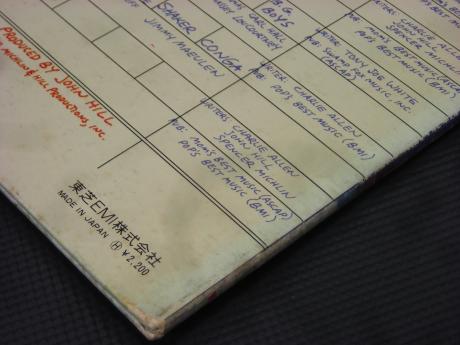 & G.
BOYS
CARL HALL
SHAKER CONGA
JIMMY MAEULEN
PRODUCED BY JOHN HILL
MICHLIN & HILL PRODUCTIONS, INC.
CHARLIE ALLEN
SPENCER MICHLIN
PUB: MOM'S BEST MUSIC (ASCAP)
POP'S BEST MUSIC (BMI)
WRITER: TONY JOE WHITE
PUB: SWAMP MUSIC, INC.
(ASCAP)
WRITER: CHARLIE ALLEN
PUB: POP'S BEST MUSIC (BMI)
WRITERS: CHARLIE ALLEN
JOHN HILL
SPENCER MICHLIN
PUB: MOM'S BEST MUSIC (ASCAP)
POP'S BEST MUSIC (BMI)
東芝EMI株式会社
MADE IN JAPAN Ⓗ ¥2,200